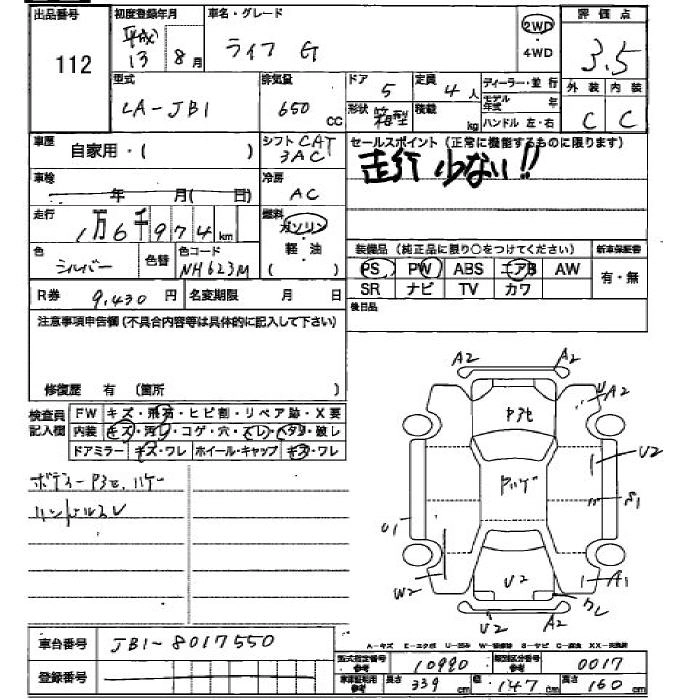 出品番号
112
初度登録年月
平成
13
8月
車名・グレード
ライフ G
2WD
・
4WD
評価点
3.5
外装 内装
C C
型式
LA-JB1
排気量
650 cc
ドア 5
定員 4人
形状 箱型
積載 kg
ディーラー・並行
モデル年式 年
ハンドル 左・右
車歴
自家用・( )
シフト CAT
3AC
セールスポイント(正常に機能するものに限ります)
走行少ない!!
車検
年 月(日)
冷房
AC
走行
1万6千974km
燃料
ガソリン
・
軽・油
( )
色
シルバー
色替
色コード
NH623M
装備品(純正品に限り○をつけてください)
新車保証書
PS PW ABS エアB AW
SR ナビ TV カワ
有・無
R券 9,430円
名変期限 月 日
後日品
注意事項申告欄(不具合内容等は具体的に記入して下さい)
修復歴 有 (箇所 )
検査員記入欄
FW キズ・飛石・ヒビ割・リペア跡・X要
内装 キズ・汚れ・コゲ・穴・スレ・ヘタリ・破レ
ドアミラー キズ・ワレ ホイール・キャップ キズ・ワレ
ボディーPヨセ、ハゲ
ハンドルスレ
A2 A2
A2
Pヨセ
U2
Pハゲ
S1
U1
W2
U2
A1
U2 A2
A-キズ E-エクボ U-凹み W-補修跡 S-サビ C-腐食 XX-交換済
車台番号
JB1-8017550
登録番号
型式指定番号 参考 10990
類別区分番号 参考 0017
車検証記載 参考 長さ 339cm 幅 147cm 高さ 160cm